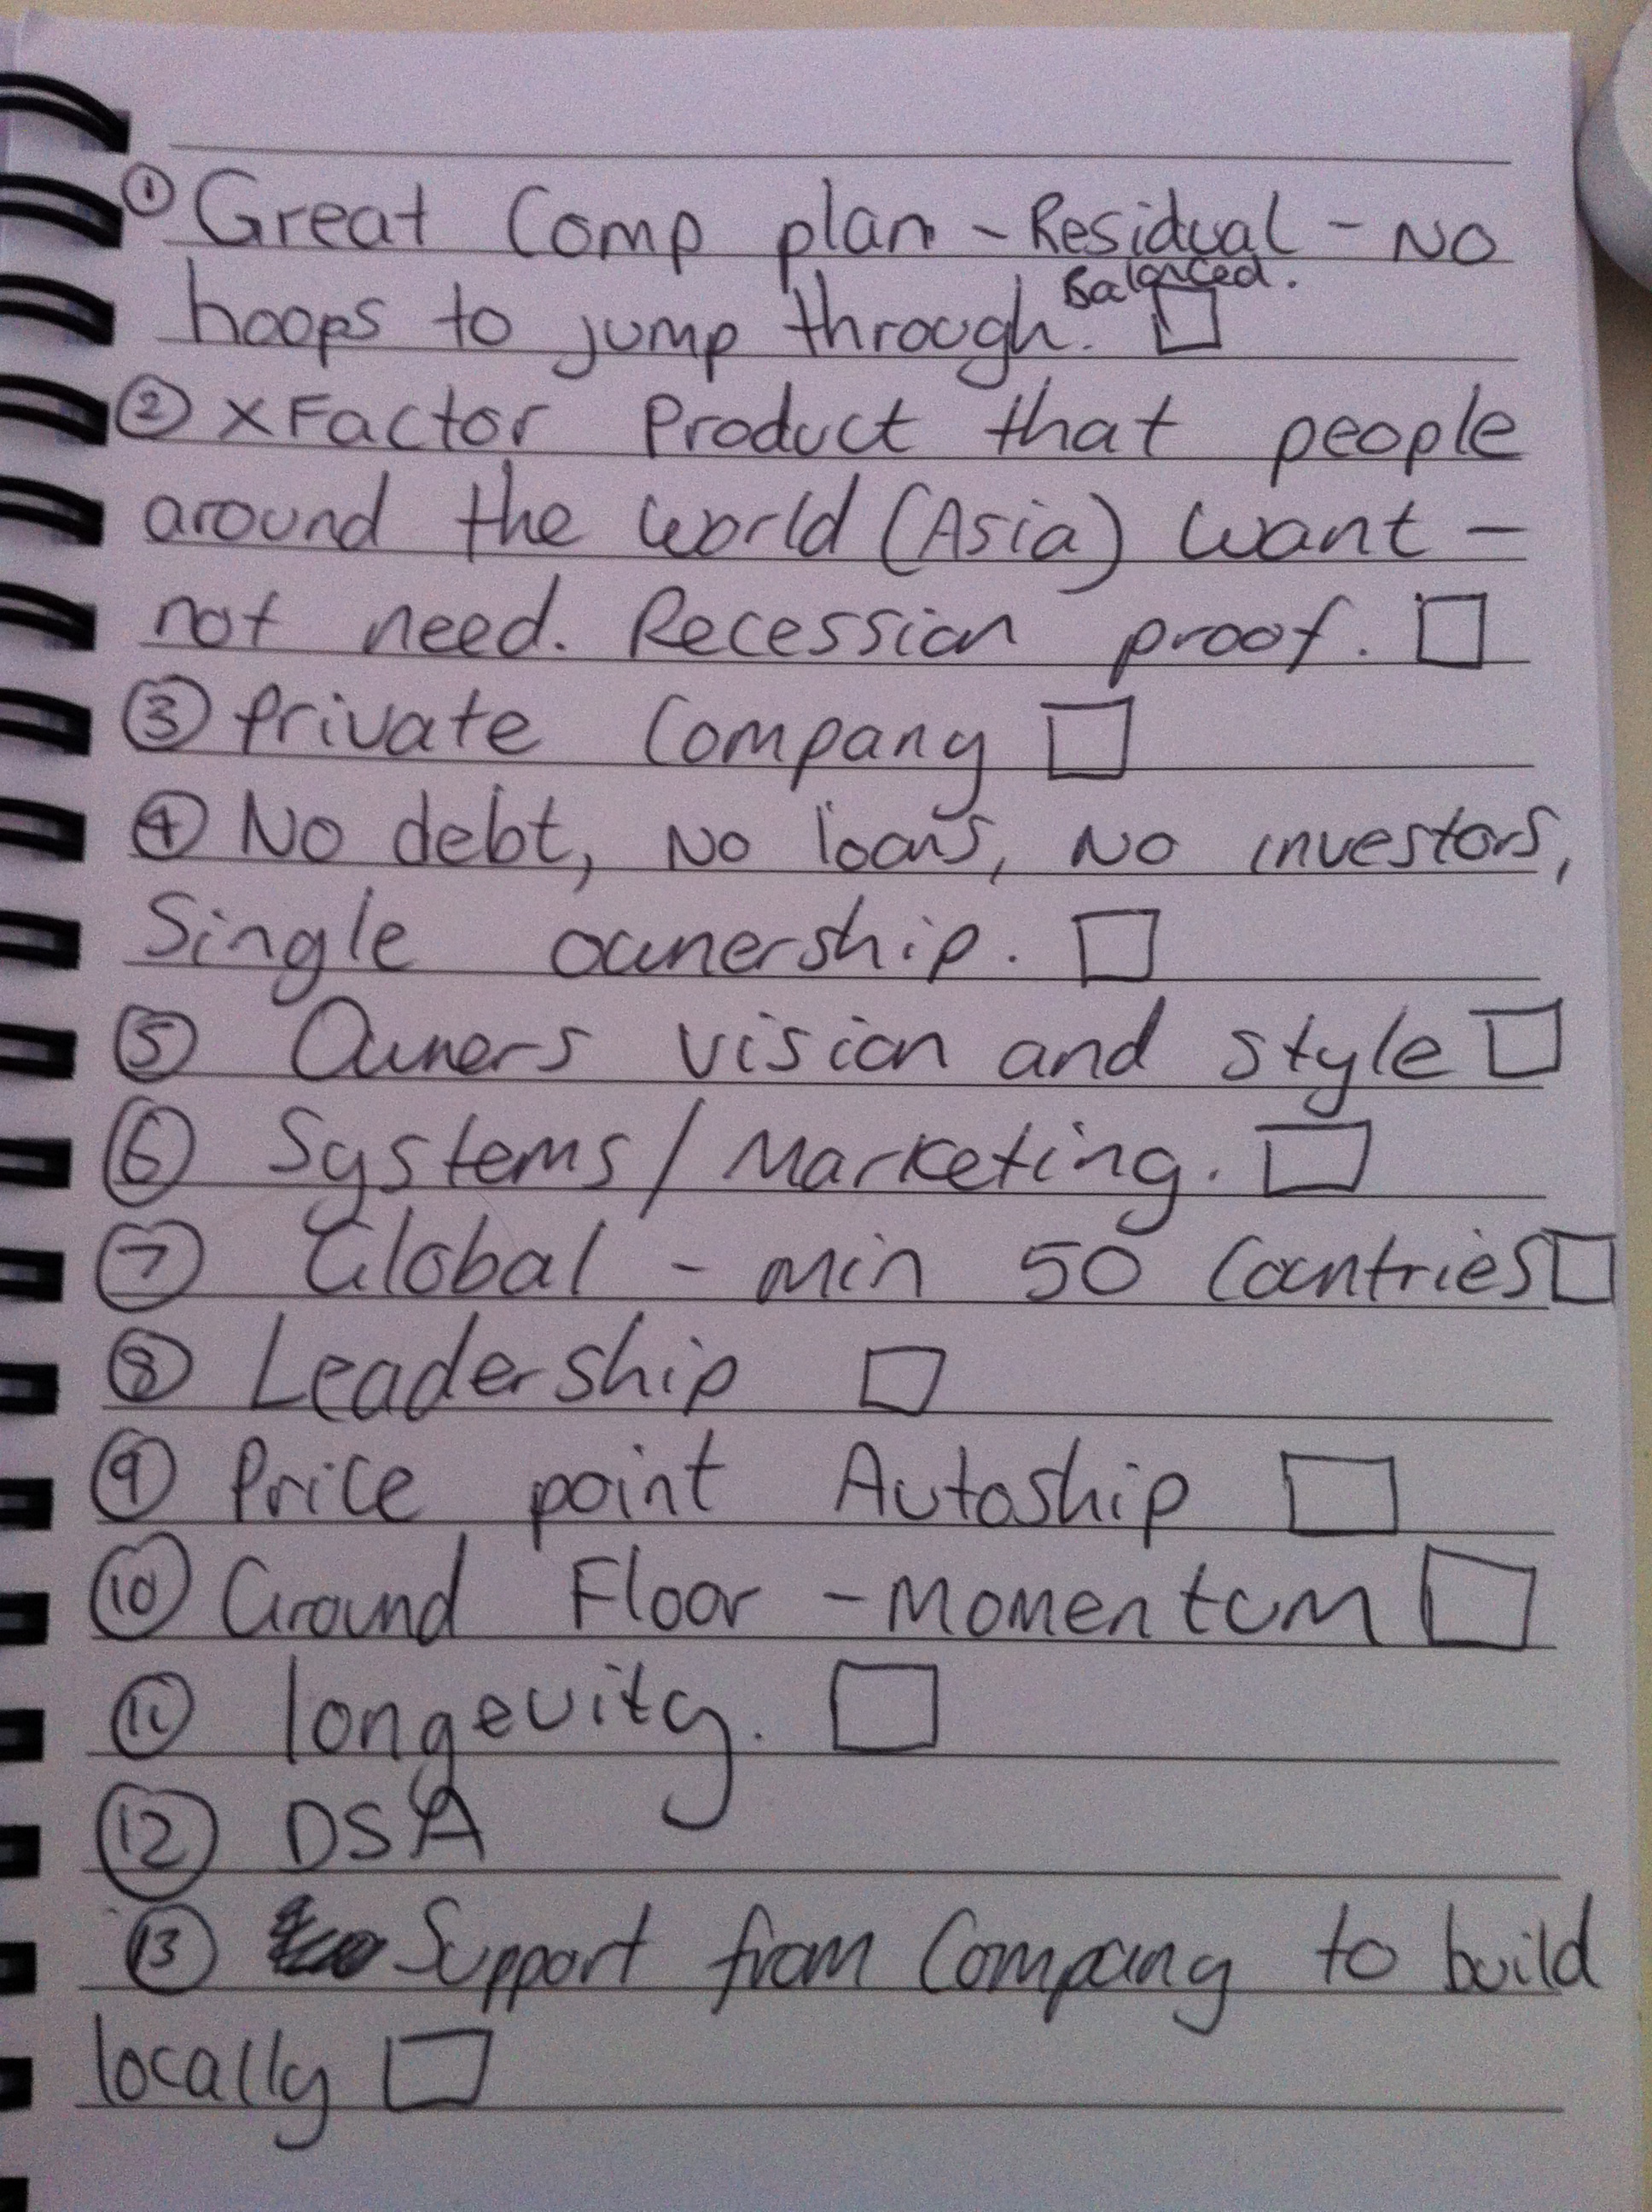 ① Great Comp plan - Residual - No
Balanced.
hoops to jump through. □
② XFactor Product that people
around the world (Asia) want -
not need. Recession proof. □
③ Private Company □
④ No debt, No loans, No investors,
Single ownership. □
⑤ Owners vision and style □
⑥ Systems / Marketing. □
⑦ Global - Min 50 Countries □
⑧ Leadership □
⑨ Price point Autoship □
⑩ Ground Floor - Momentum □
⑪ longevity. □
⑫ DSA
⑬ Support from Company to build
locally □